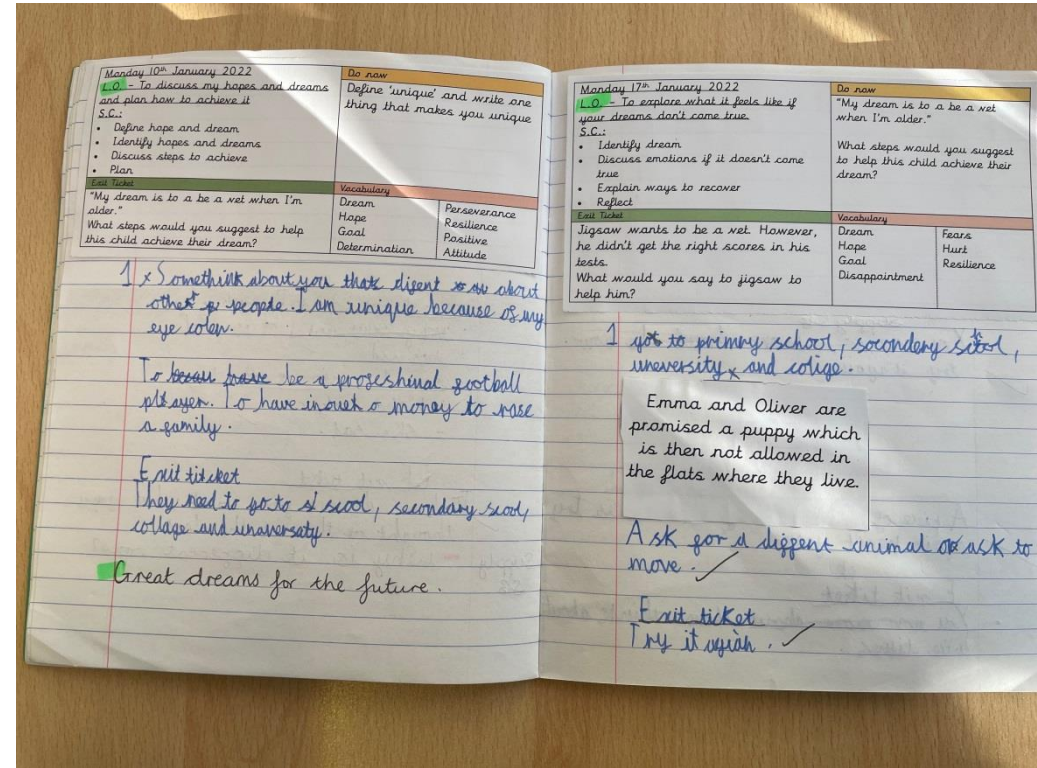 Monday 10th January 2022
L.O. - To discuss my hopes and dreams
and plan how to achieve it
S.C.:
• Define hope and dream
• Identify hopes and dreams
• Discuss steps to achieve
• Plan
Do now
Define 'unique' and write one
thing that makes you unique
Exit Ticket
"My dream is to a be a vet when I'm
older."
What steps would you suggest to help
this child achieve their dream?
Vocabulary
Dream
Hope
Goal
Determination
Perseverance
Resilience
Positive
Attitude
1 x Somethink about you thats difent about
other people. I am unique because of my
eye coler.
To be a profeshinal football
player. To have inouth money to rase
a family.
Exit titcket
They need to go to scool, secondary scool,
collage and unaversaty.
Great dreams for the future.
Monday 17th January 2022
L.O. - To explore what it feels like if
your dreams don't come true.
S.C.:
• Identify dream
• Discuss emotions if it doesn't come
true
• Explain ways to recover
• Reflect
Do now
"My dream is to a be a vet
when I'm older."
What steps would you suggest
to help this child achieve their
dream?
Exit Ticket
Jigsaw wants to be a vet. However,
he didn't get the right scores in his
tests.
What would you say to jigsaw to
help him?
Vocabulary
Dream
Hope
Goal
Disappointment
Fears
Hurt
Resilience
1 to primry school, socondery
uneversity x and colige.
Emma and Oliver are
promised a puppy which
is then not allowed in
the flats where they live.
Ask for a diffent animal or ask to
move.
Exit ticket
Try it agian.